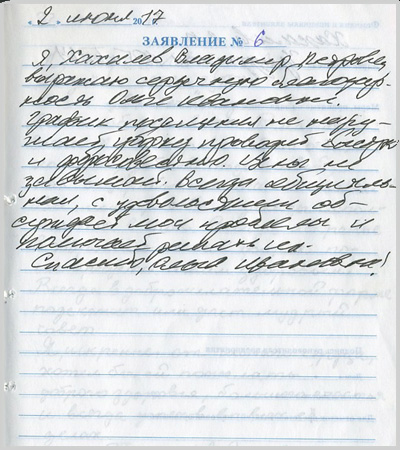 « 2 » июня 2017
ЗАЯВЛЕНИЕ № 6
Я, Хахалев Владимир Петрович
выражаю сердечную благодар-
ность Ольге Ивановне.
График посещения не нару-
шает, уборку проводит быстро
и добросовестно. Цены не
завышает. Всегда общитель-
ная, с удовольствием об-
суждает мои проблемы и
помогает решать их.
Спасибо, Ольга Ивановна!